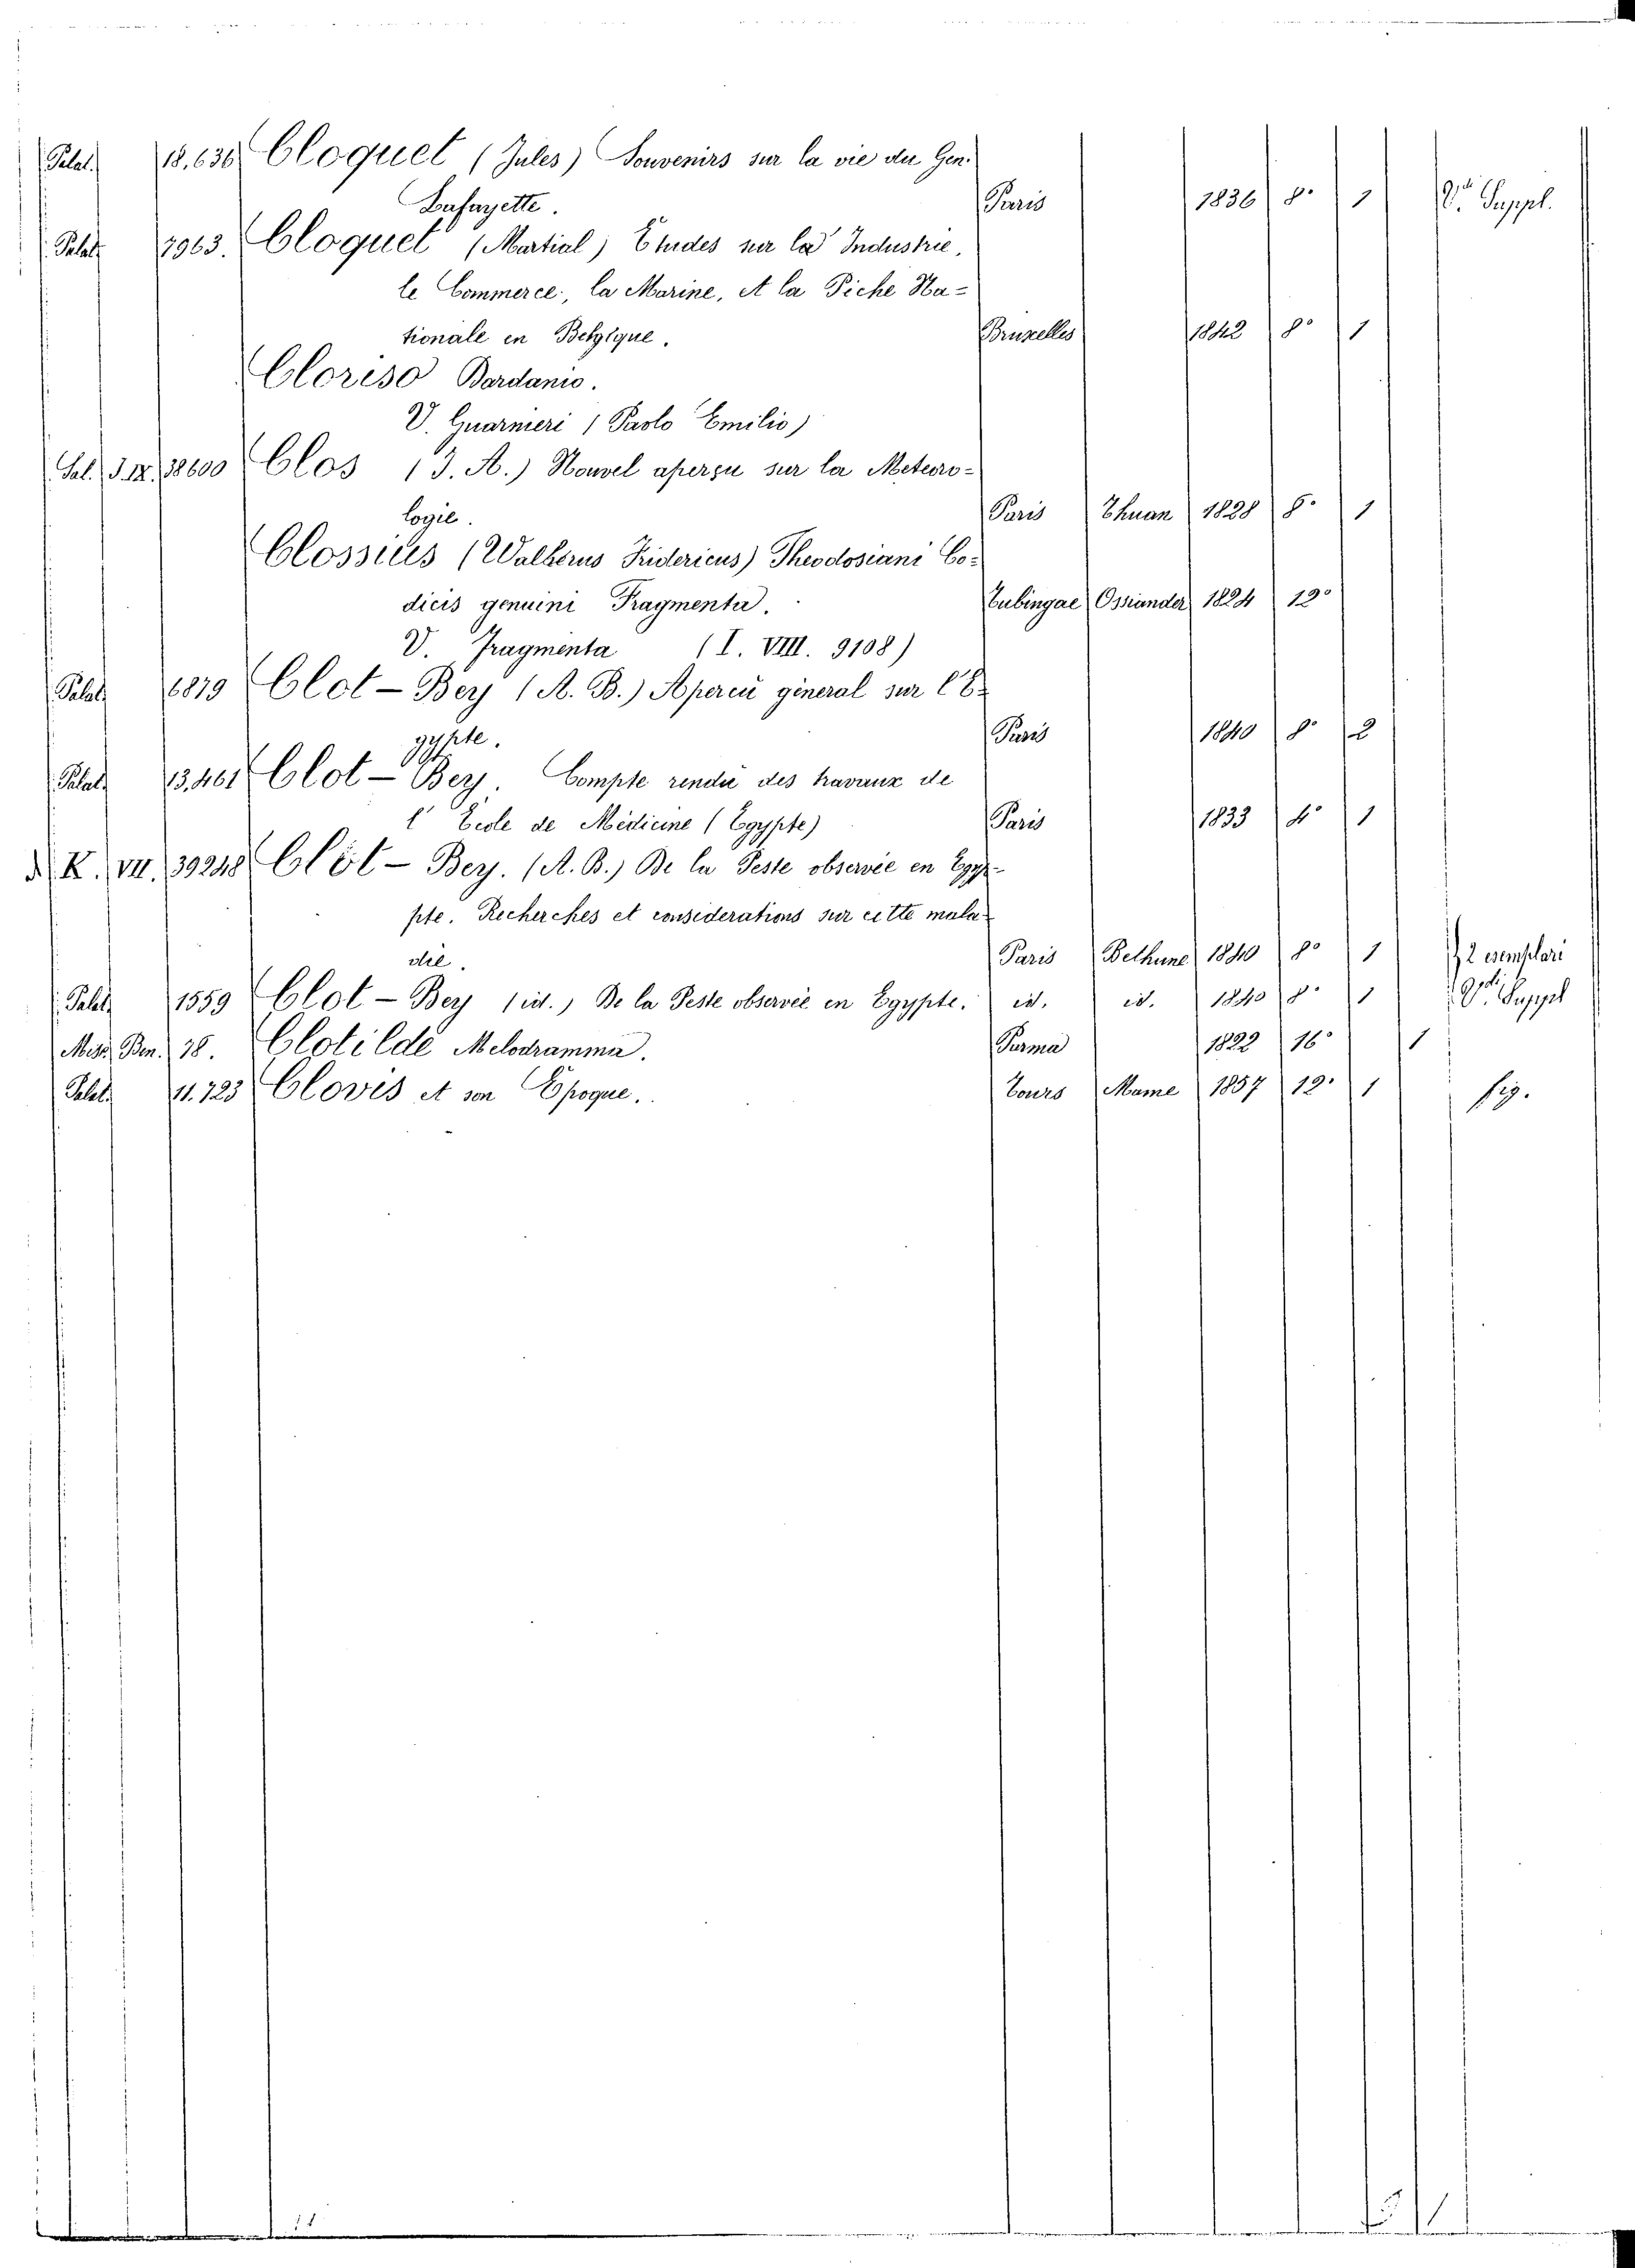 Palat. 18.636 Cloquet (Jules) Souvenirs sur la vie du Gen.
Lafayette. Paris 1836 8° 1 Suppl.
Palat. 7963. Cloquet (Martial) Etudes sur la Industrie,
le Commerce, la Marine, et la Pêche Na=
tionale en Belgique. Bruxelles 1842 8° 1
Cloriso Bardanio.
V. Guarnieri (Paolo Emilio)
Sal. J. IX. 38600 Clos (J. A.) Nouvel aperçu sur la Meteoro=
logie. Paris Thuan 1828 8° 1
Clossius (Waltherus Fridericus) Theodosiani Co=
dicis genuini Fragmenta. Tubingae Ossiander 1824 12°
V. Fragmenta (I. VIII. 9108)
Palat. 6879 Clot - Bey (A. B.) Apercu géneral sur l'E-
gypte. Paris 1840 8° 2
Palat. 13,461 Clot - Bey. Compte rendu des travaux de
l' Ecole de Médicine (Egypte) Paris 1833 4° 1
K. VII. 39248 Clot - Bey. (A. B.) De la Peste observée en Egy-
pte. Recherches et considerations sur cette mala-
die. Paris Bethune 1840 8° 1 2 esemplari
Palat. 1559 Clot - Bey (id.) De la Peste observée en Egypte. id. id. 1840 8° 1 Suppl
Misc. Ben. 78. Clotilde Melodramma. Parma 1822 16° 1
Palat. 11.723 Clovis et son Epoque. Tours Mame 1857 12° 1 fig.